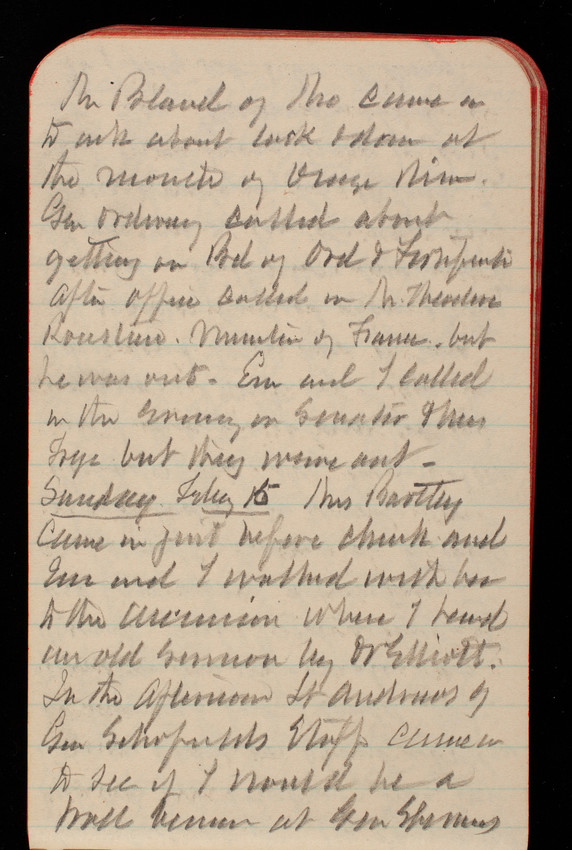 Mr Bland of Mo came in
to ask about lock & dam at
the mouth of Osage River.
Gen Ordway called about
getting on Bd of Ord & Fortificati
After office called on M. Theodore
Roustan. Minister of France. but
he was out. Em and I called
in the Evening on Senator & Mrs
Frye but they were out.
Sunday Feby 15 Mrs Bartley
Came in just before church and
Em and I walked with her
to the Ascension where I heard
an old Sermon by Dr Elliott.
In the Afternoon Lt Andrews of
Gen Schofields Staff came in
to see if I would be a
Pall bearer at Gen Shermans